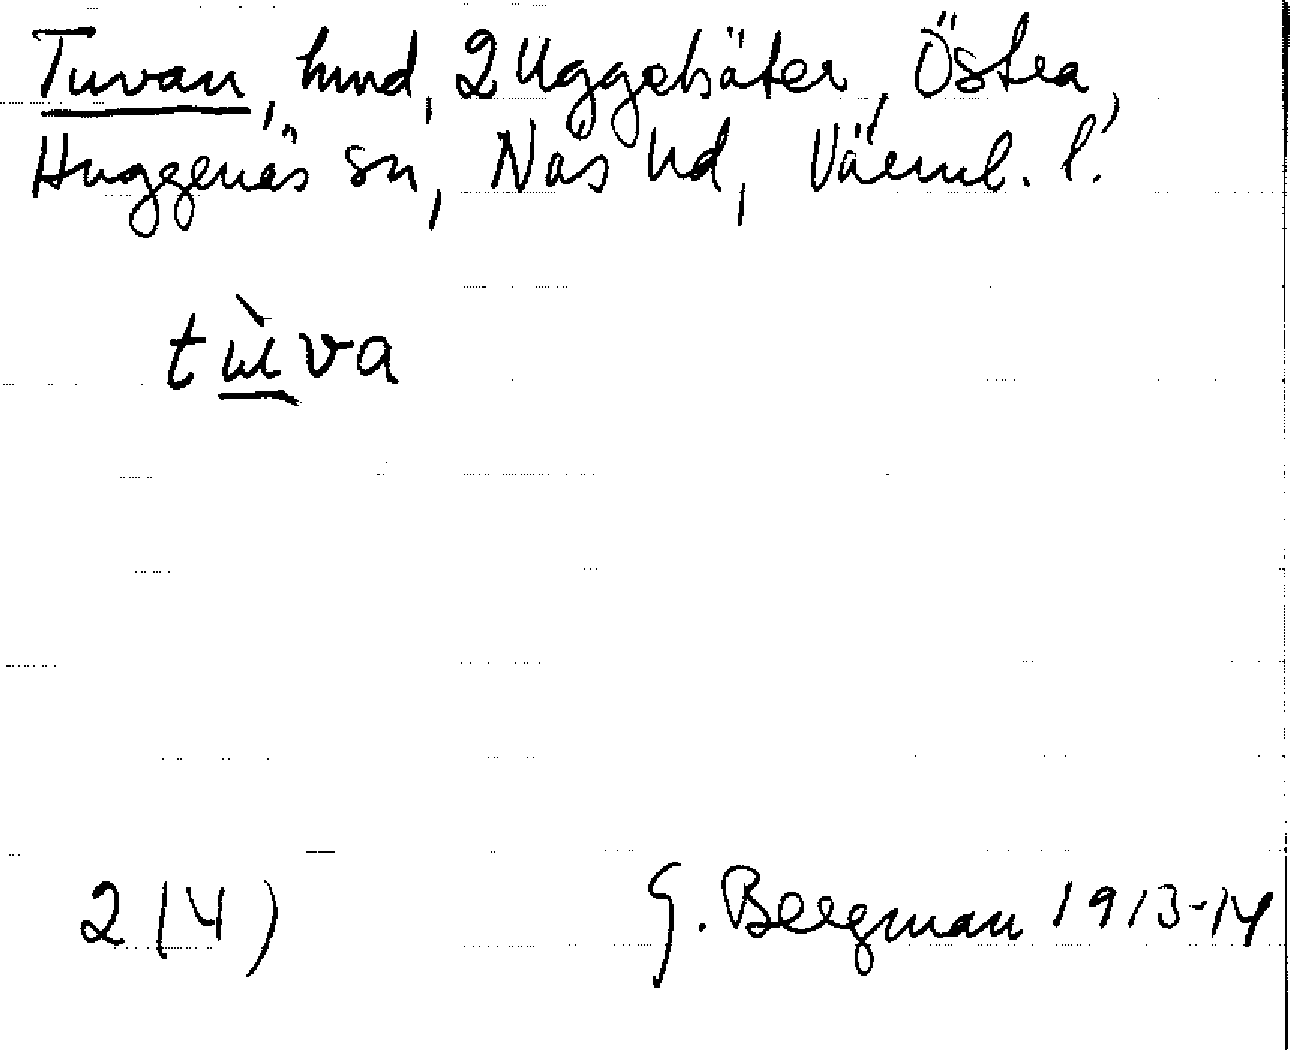 Tuvan, hmd, 2 Uggelsäter, Östra,
Huggenäs sn, Näs hd, Värml. l.
tùva
2 (4)
G. Bergman 1913-14